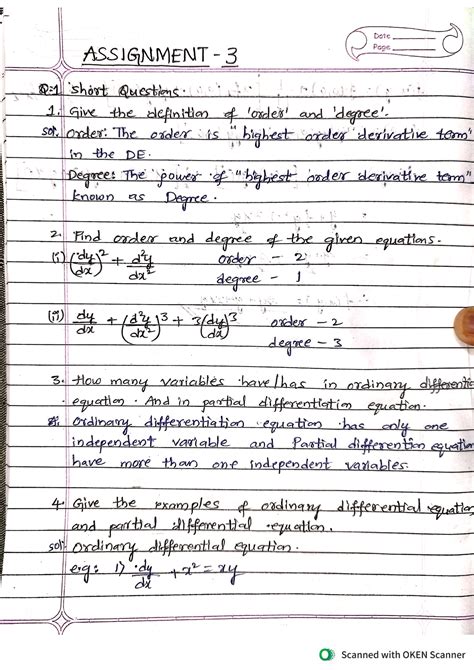 Date
Page
ASSIGNMENT - 3
Q:1 Short Questions.
1. Give the definition of 'order' and 'degree'.
sol. Order: The order is "highest order derivative term"
in the DE.
Degree: The power of "highest order derivative term"
known as Degree.
2. Find order and degree of the given equations.
(i) (dy/dx)² + d²y/dx² order - 2
degree - 1
(ii) dy/dx + (d²y/dx²)³ + 3(dy/dx)³ order - 2
degree - 3
3. How many variables have/has in ordinary differentic
equation. And in partial differentiation equation.
Ordinary differentiation equation has only one
independent variable and Partial differention equation
have more than one independent variables.
4. Give the examples of ordinary differential equation
and partial differential equation.
sol. Ordinary differential equation.
e.g: 1) dy/dx + x² = xy
Scanned with OKEN Scanner